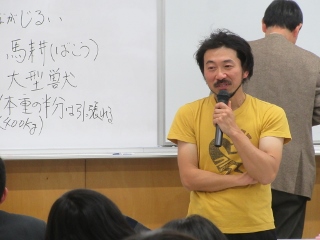 がじるい
馬耕(ばこう)
大型獣
体重の半分は引っ張れる
(400kg)